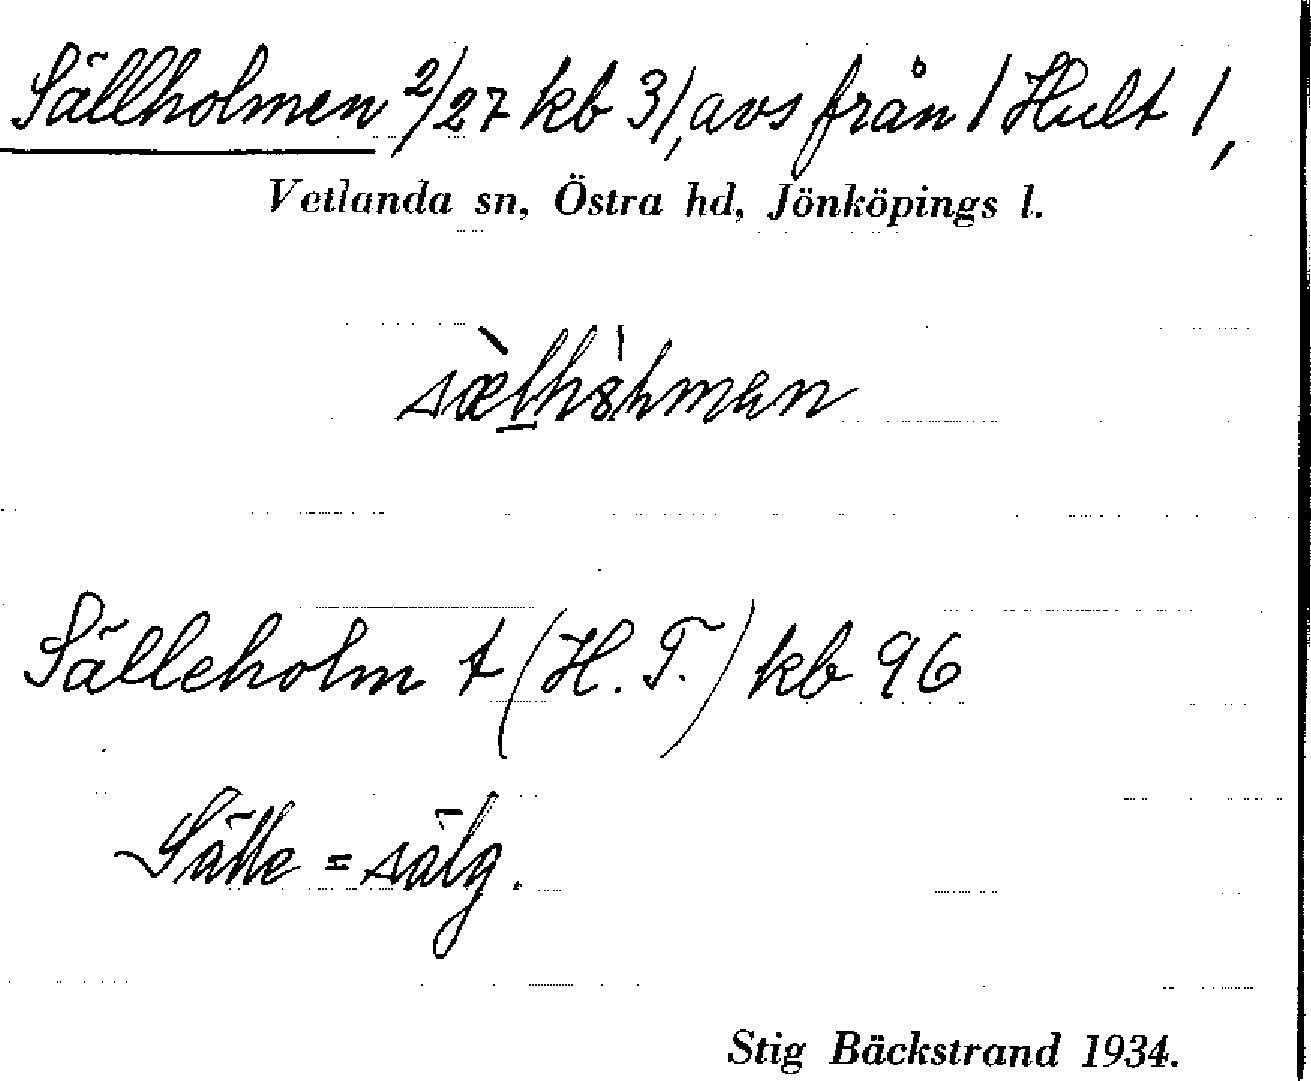 Sällholmen 2/27 kb 3/, avs från / Hult /,
Vetlanda sn, Östra hd, Jönköpings l.
Sälleholm t (H. T.) kb 96
Sälle = sälg.
Stig Bäckstrand 1934.